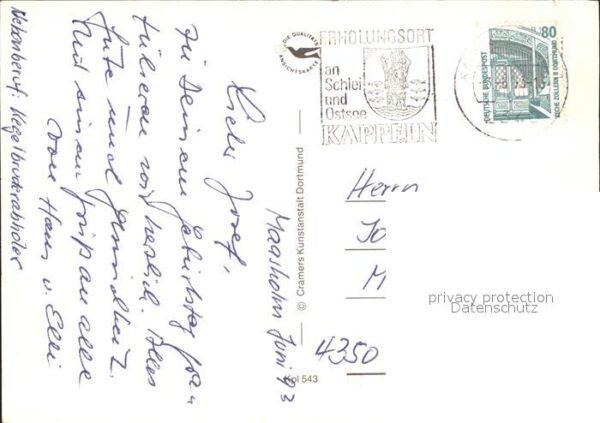 Maasholm Juni 93
Lieber Josef,
zu Deinem Geburtstag gra-
tulieren wir herzlich. Alles
Gute und Gesundheit.
Mit einem Gruß an alle
von Hans u. Elli
Nebenberuf: Kegelbruderabholer
DIE QUALITÄTS
ANSICHTSKARTE
© Cramers Kunstanstalt Dortmund
543
ERHOLUNGSORT
an
Schlei
und
Ostsee
KAPPELN
80
DEUTSCHE BUNDESPOST
ZECHE ZOLLERN II DORTMUND
Herrn
Jo
M
4350
privacy protection
Datenschutz